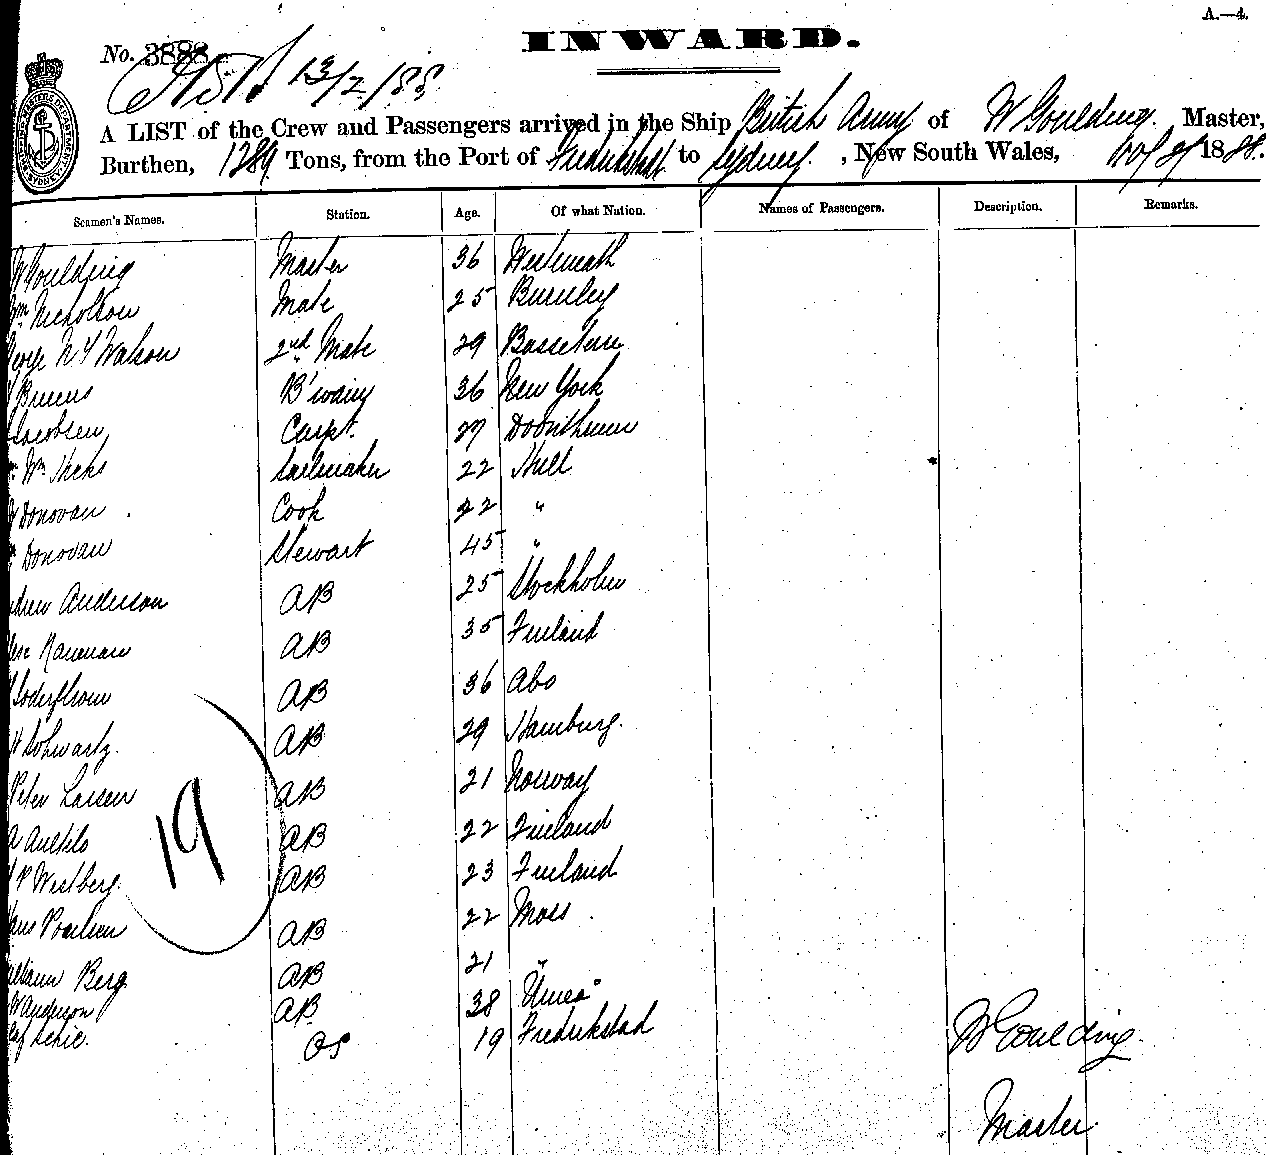 A.—4.
INWARD.
No. 3888
13/2/88
A LIST of the Crew and Passengers arrived in the Ship British Army of W Goulding. Master,
Burthen, 1289 Tons, from the Port of Fredrikstadt to Sydney. , New South Wales, 1888.
Seamen's Names. Station. Age. Of what Nation. Names of Passengers. Description. Remarks.
W Goulding Master 36 Westmeath
Nicholson Mate 25 Burnley
Watson 2nd Mate 29
36 New York
Jacobsen Carpt. 27
Wm Hicks Sailmaker 22 Hull
Donovan Cook 22 "
Donovan Stewart 45 "
Anderson AB 25 Stockholm
AB 35 Finland
AB 36 Abo
Schwartz. AB 29 Hamburg.
Peter Larsen AB 21 Norway
AB 22 Finland
19
P Westberg. AB 23 Finland
AB 22 Moss
Berg AB 21 "
W Anderson AB 38 Umea
OS 19 Fredrikstad
W Goulding
Master